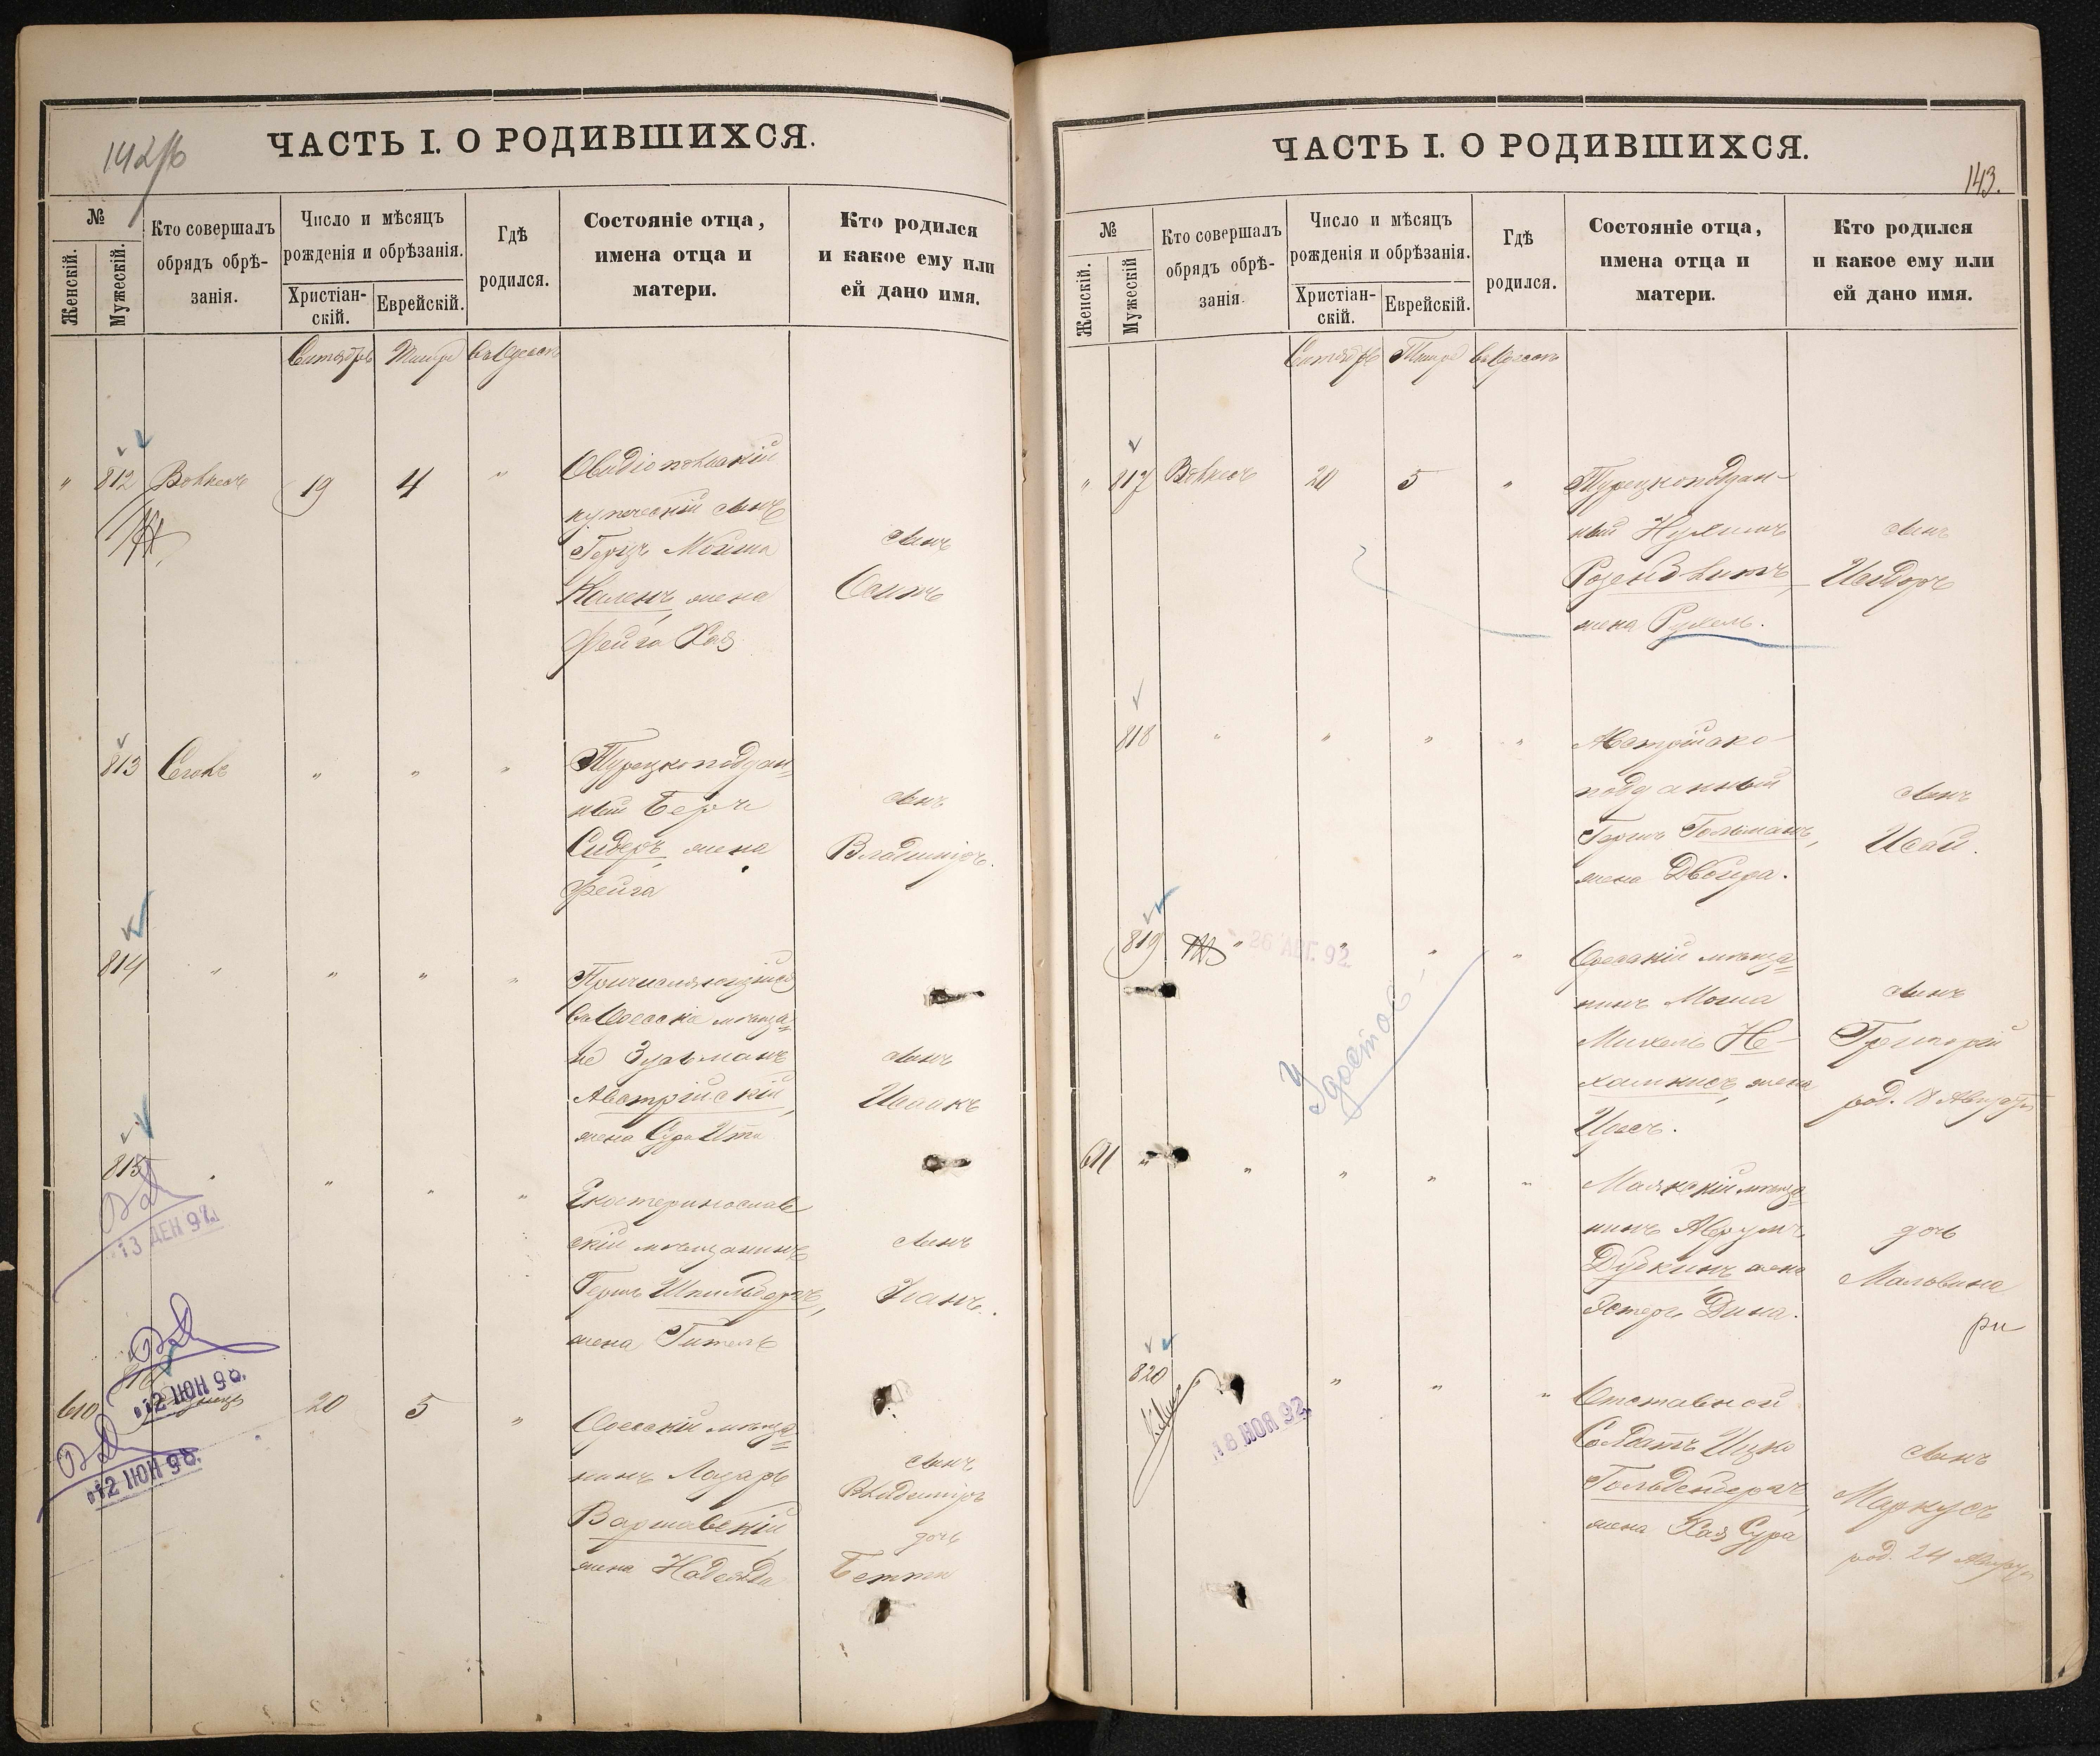 142 об
ЧАСТЬ I. О РОДИВШИХСЯ.
№
Женскій.
Мужескій.
Кто совершалъ
обрядъ обрѣ-
занія.
Число и мѣсяцъ
рожденія и обрѣзанія.
Христіан-
скій.
Еврейскій.
Гдѣ
родился.
Состояніе отца,
имена отца и
матери.
Кто родился
и какое ему или
ей дано имя.
Сентябрь Тишри въ Одессѣ
" 812 19 4 "
Овидіопольскій
купеческій сынъ
Герцъ Мойша
Каленъ, жена
Фейга Хая
сынъ
813 Сегалъ " " "
Турецкоподдан=
ный Берл
Сидеръ, жена
Фейга
сынъ
Владиміръ.
814 " " " "
Причисляющійся
въ Одесскіе мѣща=
не Зусьманъ
Австрійскій,
жена Сура Ита
сынъ
Исаакъ
815 " " " "
Екатеринослав
скій мѣщанинъ
Герш Шпильбергъ,
жена Гитель
сынъ
13 ДЕН 97.
816
12 ІЮН 90.
610 20 5 "
12 ІЮН 90.
Одесскій мѣща=
нинъ Лазарь
Варшавскій,
жена Надежда
сынъ
Владиміръ
дочь
Бетти
ЧАСТЬ I. О РОДИВШИХСЯ.
143.
№
Женскій.
Мужескій
Кто совершалъ
обрядъ обрѣ-
занія.
Число и мѣсяцъ
рожденія и обрѣзанія.
Христіан-
скій.
Еврейскій.
Гдѣ
родился.
Состояніе отца,
имена отца и
матери.
Кто родился
и какое ему или
ей дано имя.
Сентябрь Тишри въ Одессѣ
" 817 20 5 "
Турецкоподдан-
ный Нухимъ
Розенблитъ,
жена Рухель.
сынъ
Исидоръ
818 " " " "
Австрійско-
подданный
Герш Гольманъ,
жена Двойра.
сынъ
Исай.
819 " " " "
26 АВГ. 92
Удостов
Одесскій мѣща=
нинъ Мошка
Михель Не-
хамкисъ, жена
сынъ
Григорій
род. 18 Августа
611 " " " " "
Маякскій мѣща=
нинъ Аврумъ
Дубкинъ жена
Эстеръ Дина.
дочь
Мальвина
820 " " "
18 НОЯ 92
Отставной
Солдатъ Ицко
Гольденбергъ,
жена Хая Сура
сынъ
Маркусъ
род. 24 Августа